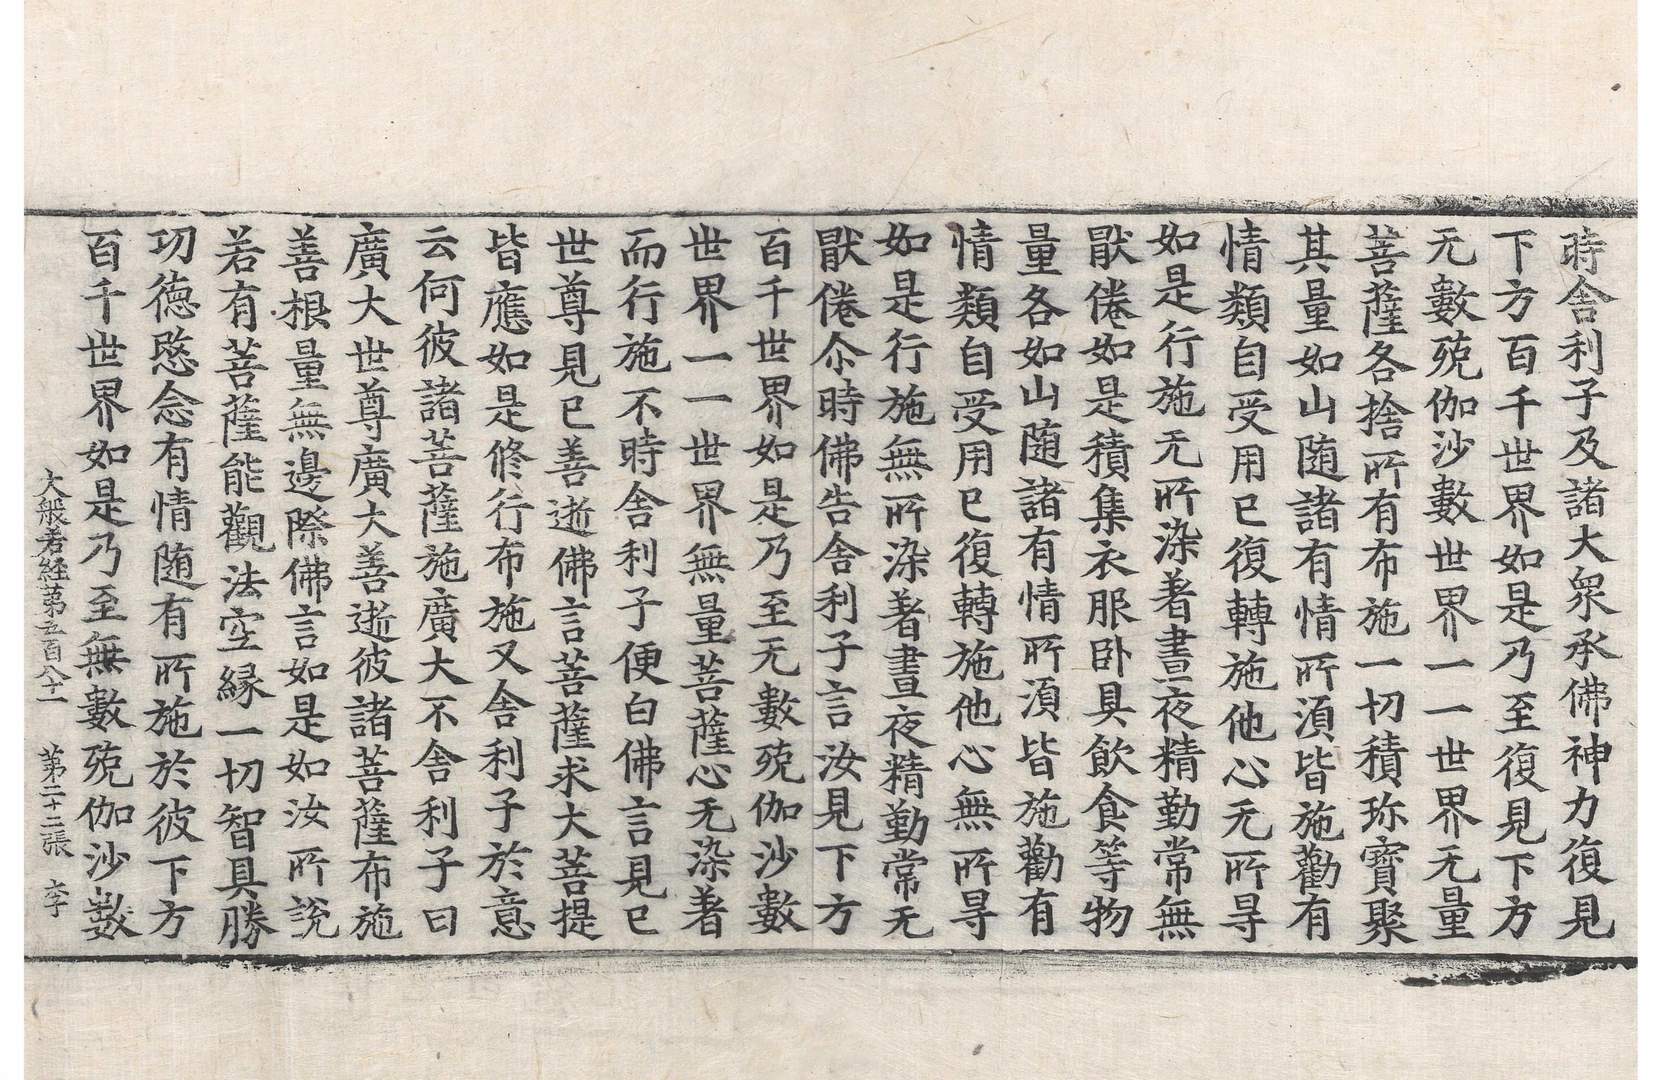 時舎利子及諸大衆承佛神力復見
下方百千世界如是乃至復見下方
无數殑伽沙數世界一一世界无量
菩薩各捨所有布施一切積珎寳聚
其量如山随諸有情所湏皆施勸有
情類自受用已復轉施他心无所㝵
如是行施无所染著晝夜精勤常無
猒倦如是積集衣服卧具飲食等物
量各如山随諸有情所湏皆施勸有
情類自受用已復轉施他心無所㝵
如是行施無所染著晝夜精勤常无
猒倦尒時佛告舎利子言汝見下方
百千世界如是乃至无數殑伽沙數
世界一一世界無量菩薩心无染著
而行施不時舎利子便白佛言見已
世尊見已善逝佛言菩薩求大菩提
皆應如是修行布施又舎利子於意
云何彼諸菩薩施廣大不舎利子曰
廣大世尊廣大善逝彼諸菩薩布施
善根量無邊際佛言如是如汝所說
若有菩薩能觀法空縁一切智具勝
功德愍念有情随有所施於彼下方
百千世界如是乃至無數殑伽沙數
大般若経苐五百八十一　苐二十二張　李